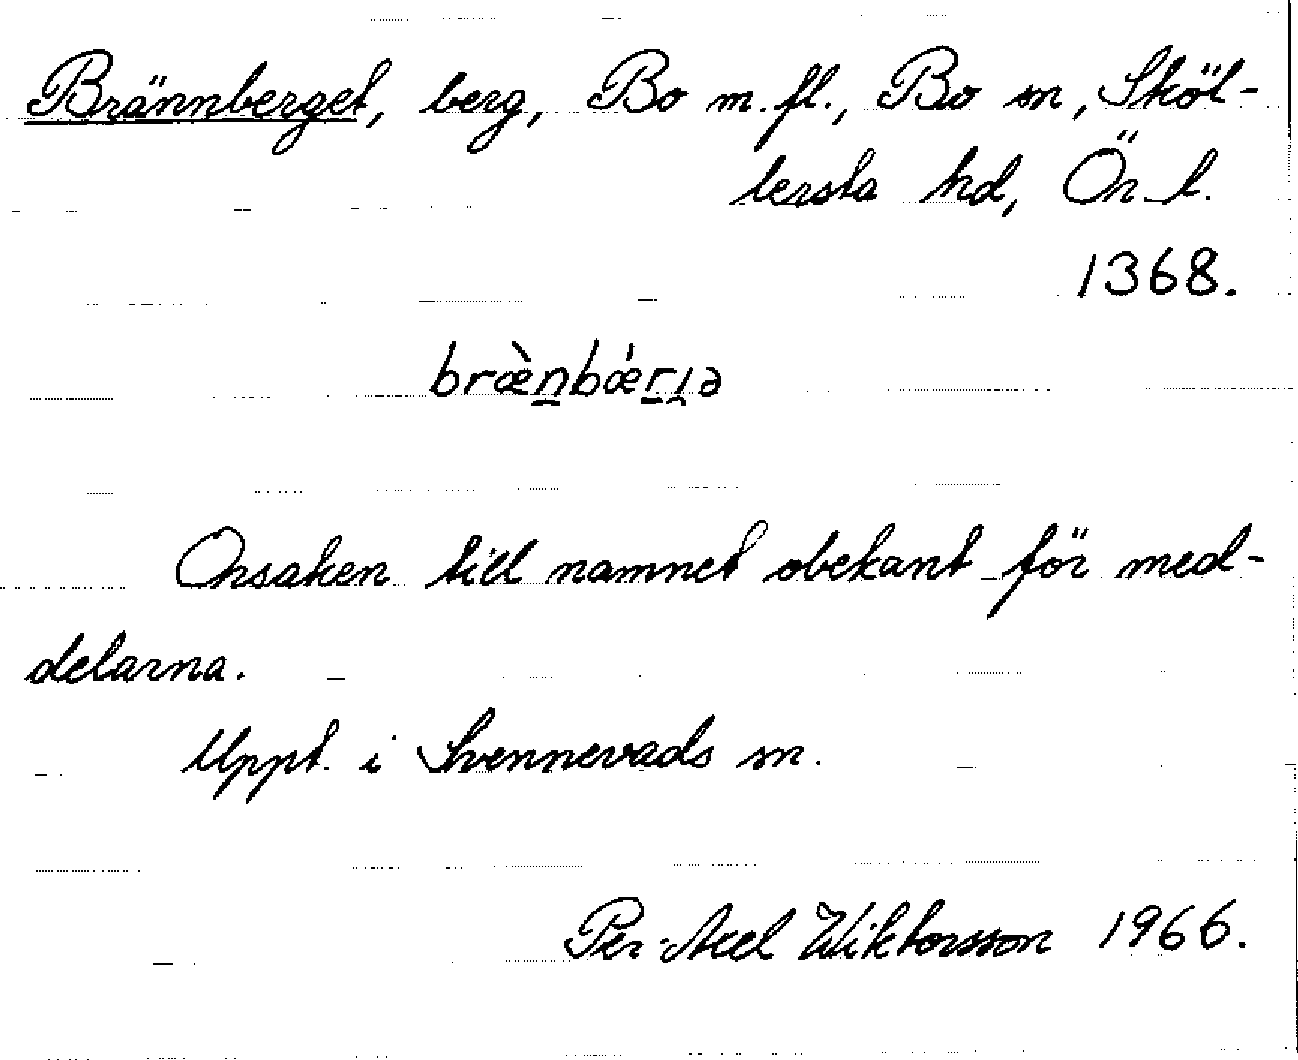 Brännberget, berg, Bo m. fl., Bo sn, Sköl-
lersta hd, Ör. l.
1368.
bræ̀nbǽrɪə
Orsaken till namnet obekant för med-
delarna.
Uppt. i Svennevads sn.
Per-Axel Wiktorsson 1966.